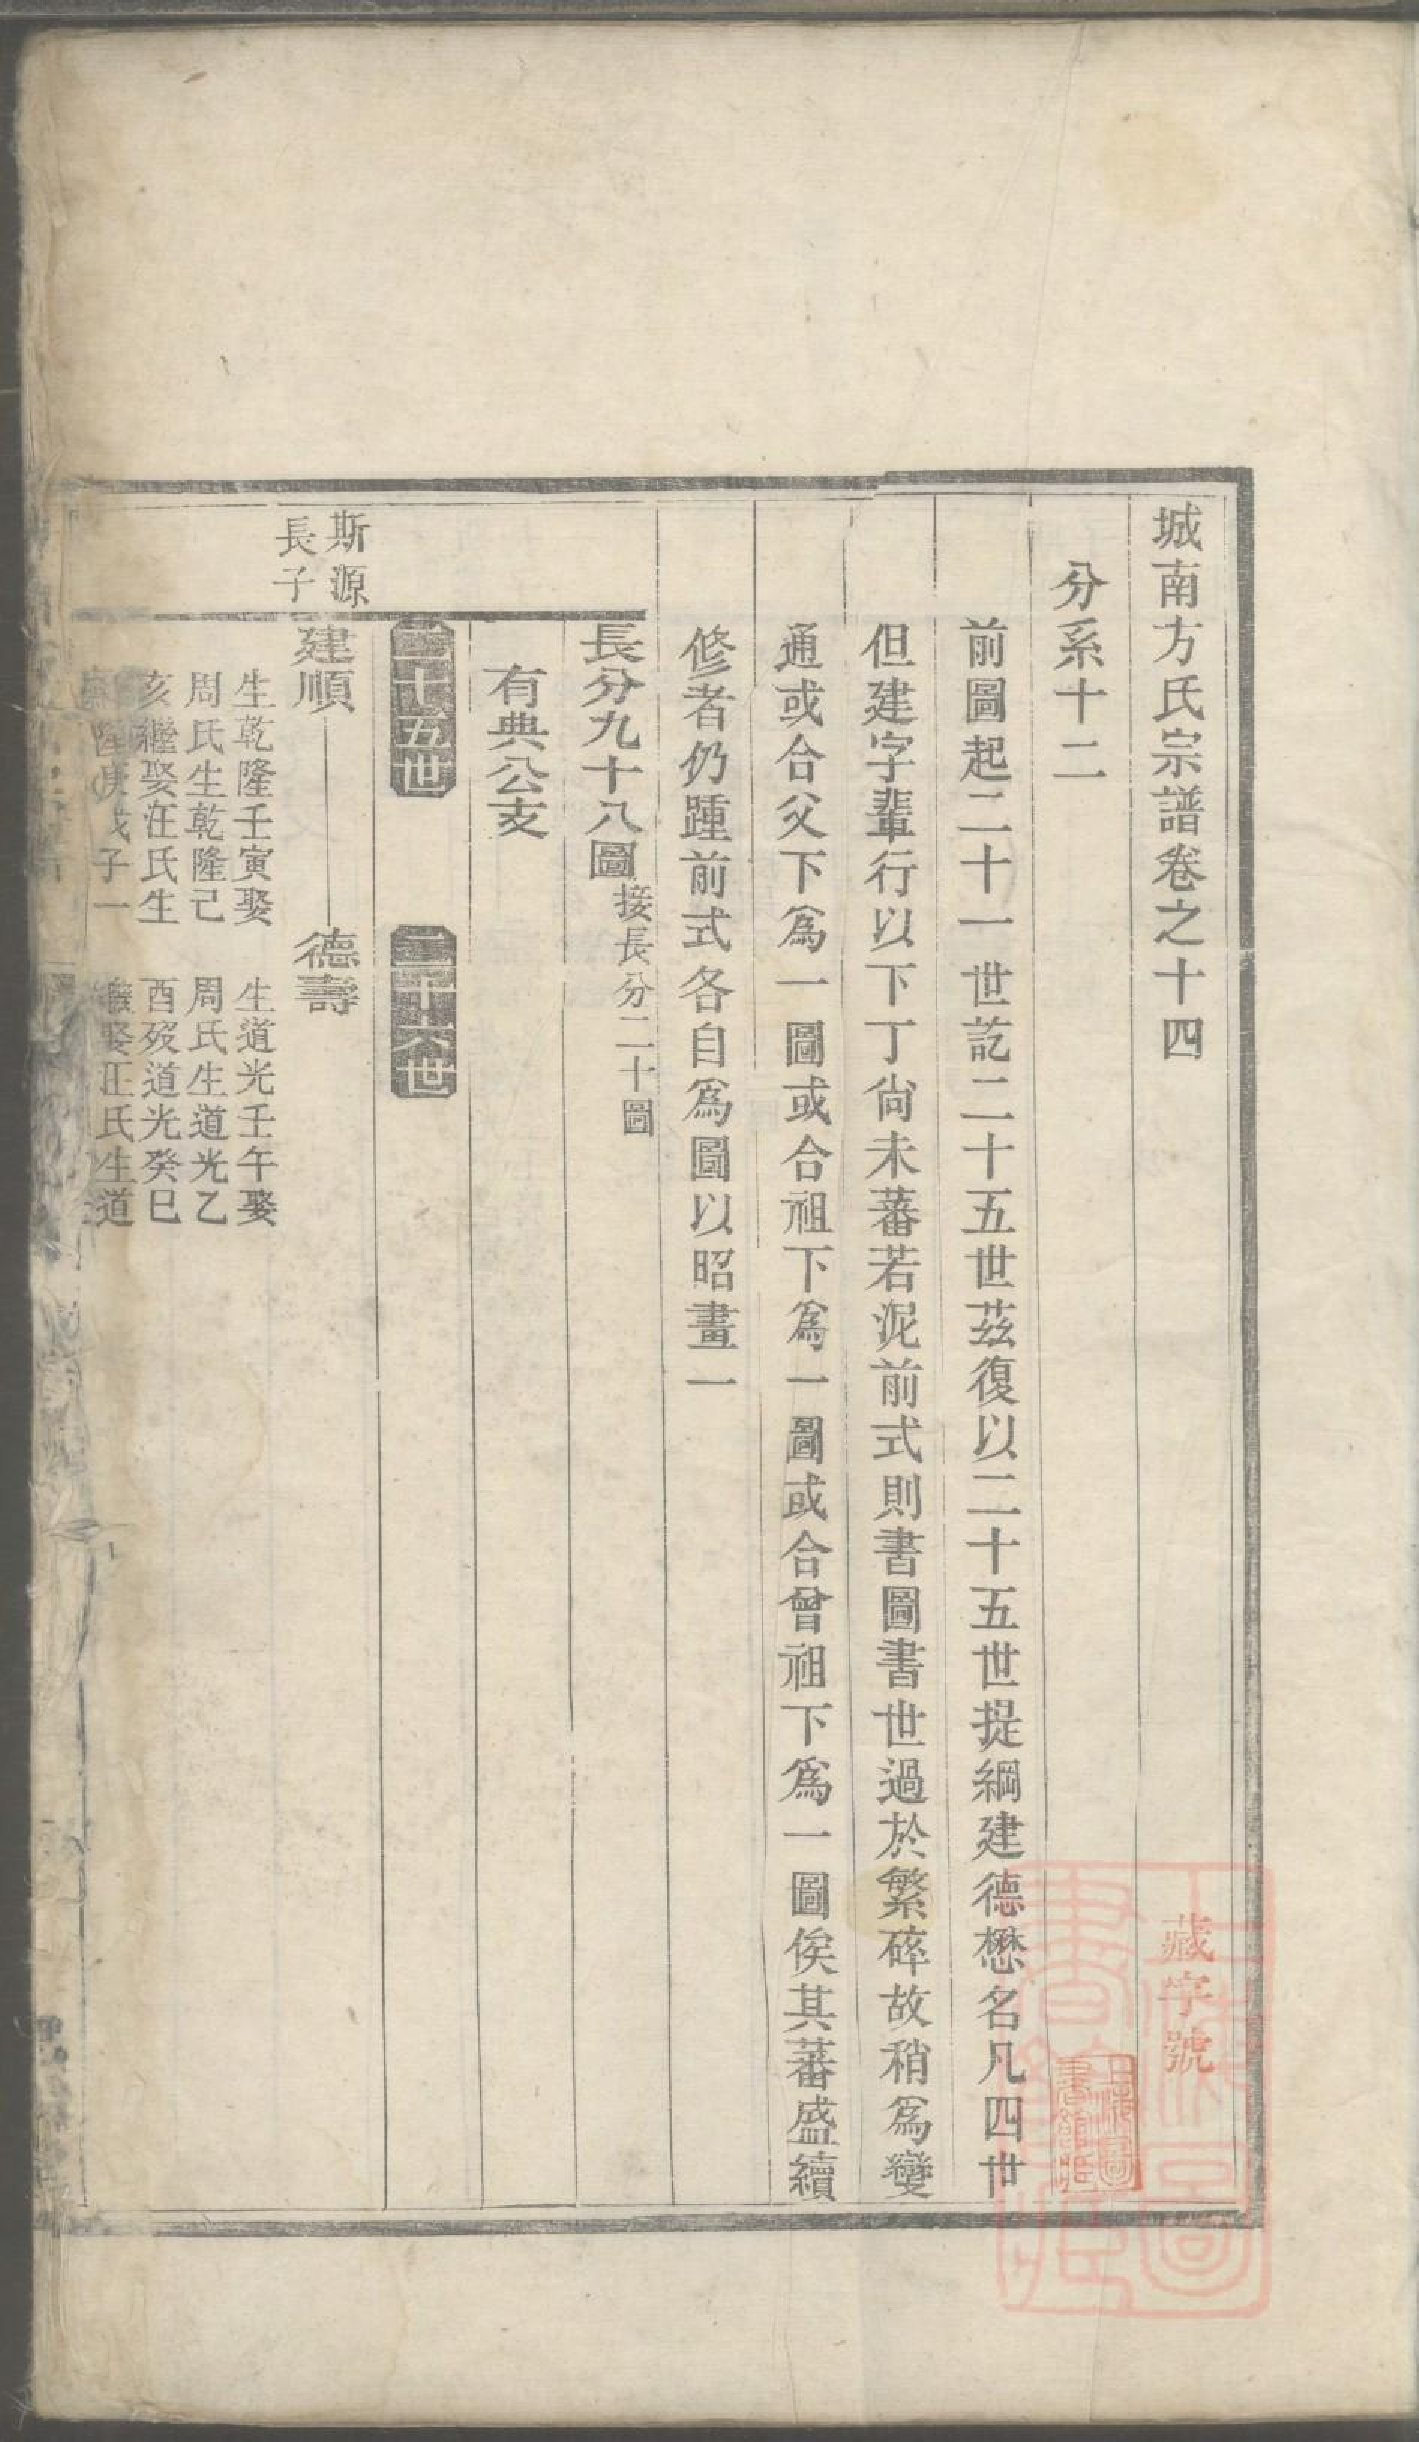 城南方氏宗譜卷之十四
藏字號
分系十二
前圖起二十一世訖二十五世茲復以二十五世提綱建德懋名凡四世
但建字輩行以下丁尙未蕃若泥前式則書圖書世過於繁碎故稍爲變
通或合父下爲一圖或合祖下爲一圖或合曾祖下爲一圖俟其蕃盛續
修者仍踵前式各自爲圖以昭畫一
長分九十八圖
接長分二十圖
有典公支
二十五世
二十六世
斯源
長子
建順
德壽
生乾隆壬寅娶
周氏生乾隆己
亥繼娶汪氏生
隆庚戌子一
生道光壬午娶
周氏生道光乙
酉歿道光癸巳
繼娶汪氏生道
上海圖
書館藏
上海圖
書館藏